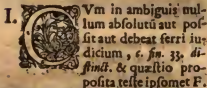 I. CVm in ambiguis nul-
lum absolutũ aut pos-
sit aut debeat ferri iu-
dicium, 6. fin. 33. di-
stinct. & quæstio pro-
posita teste ipsomet F.